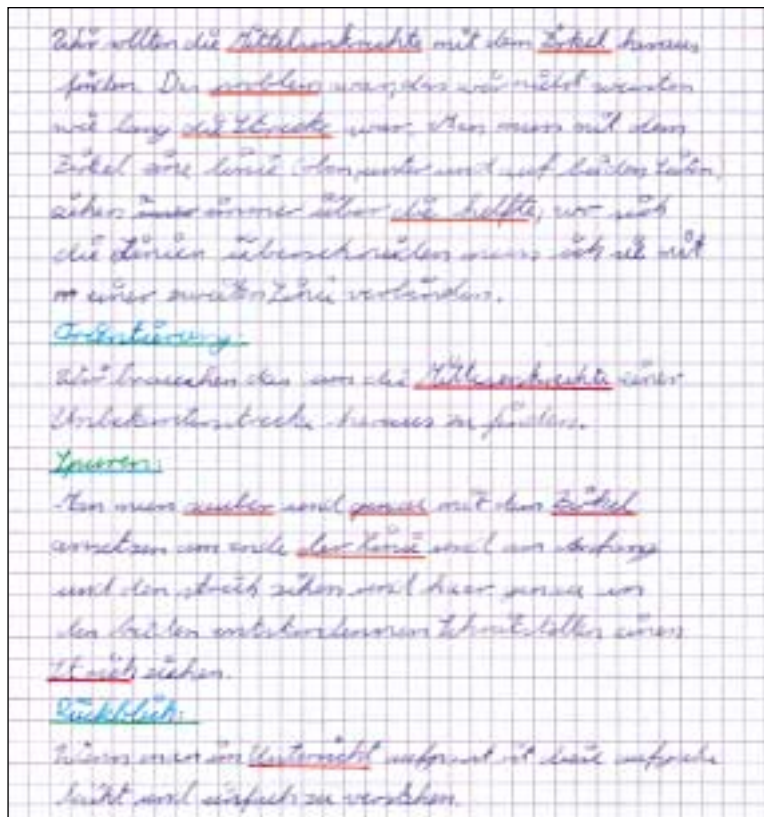 Wir wollten die Mittelsenkrechte mit dem Zirkel heraus
finden. Das problem war, das wir nicht wussten
wie lang die Strecke war. Man muss mit dem
Zirkel eine linie (oben, unter und auf beiden Seiten)
zihen immer über die helfte, wo sich
die Linien überschneiden muss ich sie mit
einer zweiten Linie verbinden.
Orientierung:
Wir brauchen das um die Mittelsenkrechte einer
Unbekantenstrecke heraus zu finden.
Spuren:
Man muss sauber und genau mit dem Zirkel
ansetzen am ende der Linie und am Anfang
und den strich zihen und hier genau in
den beiden entstandennen Schnitstellen einen
Strich ziehen.
Rückblick:
Wenn man im Unterricht aufpasst ist diese aufgabe
leicht und einfach zu verstehen.